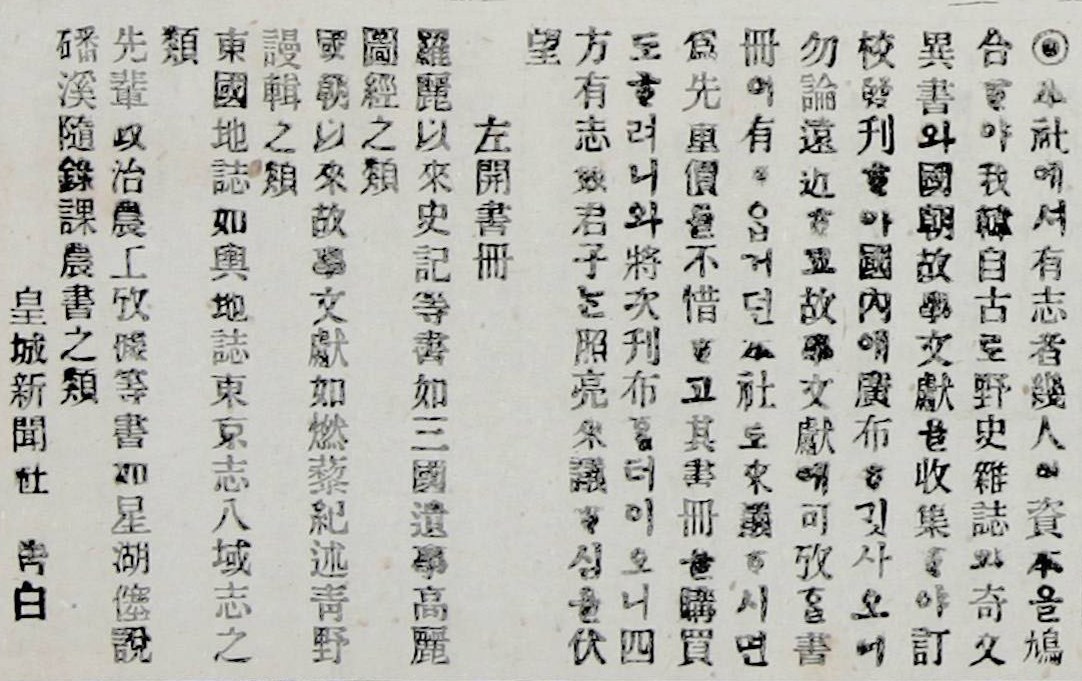 ◉本社에셔有志者幾人이資本을鳩
合ᄒᆞ야我韓自古로野史雜誌와奇文
異書와國朝故事文獻을收集ᄒᆞ야訂
校發刊ᄒᆞ야國內에廣布ᄒᆞ깃사오며
勿論遠近ᄒᆞ고故事文獻에可攷ᄒᆞᆯ書
冊이有ᄒᆞ옵거던本社로來議ᄒᆞ시면
爲先重價를不惜ᄒᆞ고其書冊을購買
도ᄒᆞ려니와將次刊布ᄒᆞᆯ터이오니四
方有志ᄒᆞ신君子는照亮來議ᄒᆞ심을伏
望
左開書冊
羅麗以來史記等書如三國遺事高麗
圖經之類
國朝以來故事文獻如燃藜紀述靑野
謾輯之類
東國地誌如輿地誌東京志八域志之
類
先輩政治農工攷據等書如星湖僿說
磻溪隨錄課農書之類
皇城新聞社 告白